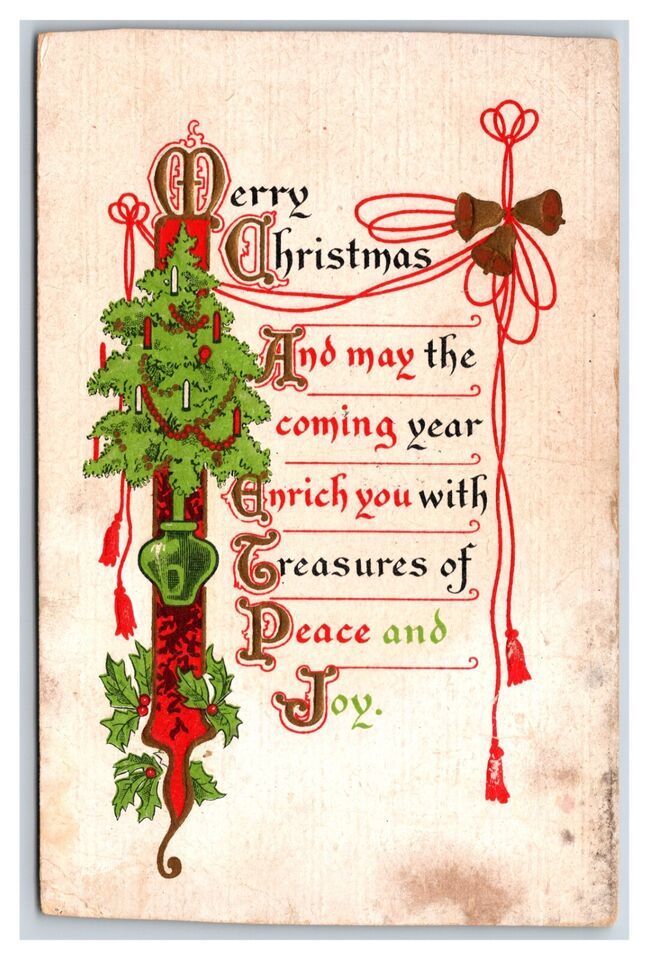 Merry
Christmas
And may the
coming year
Enrich you with
Treasures of
Peace and
Joy.